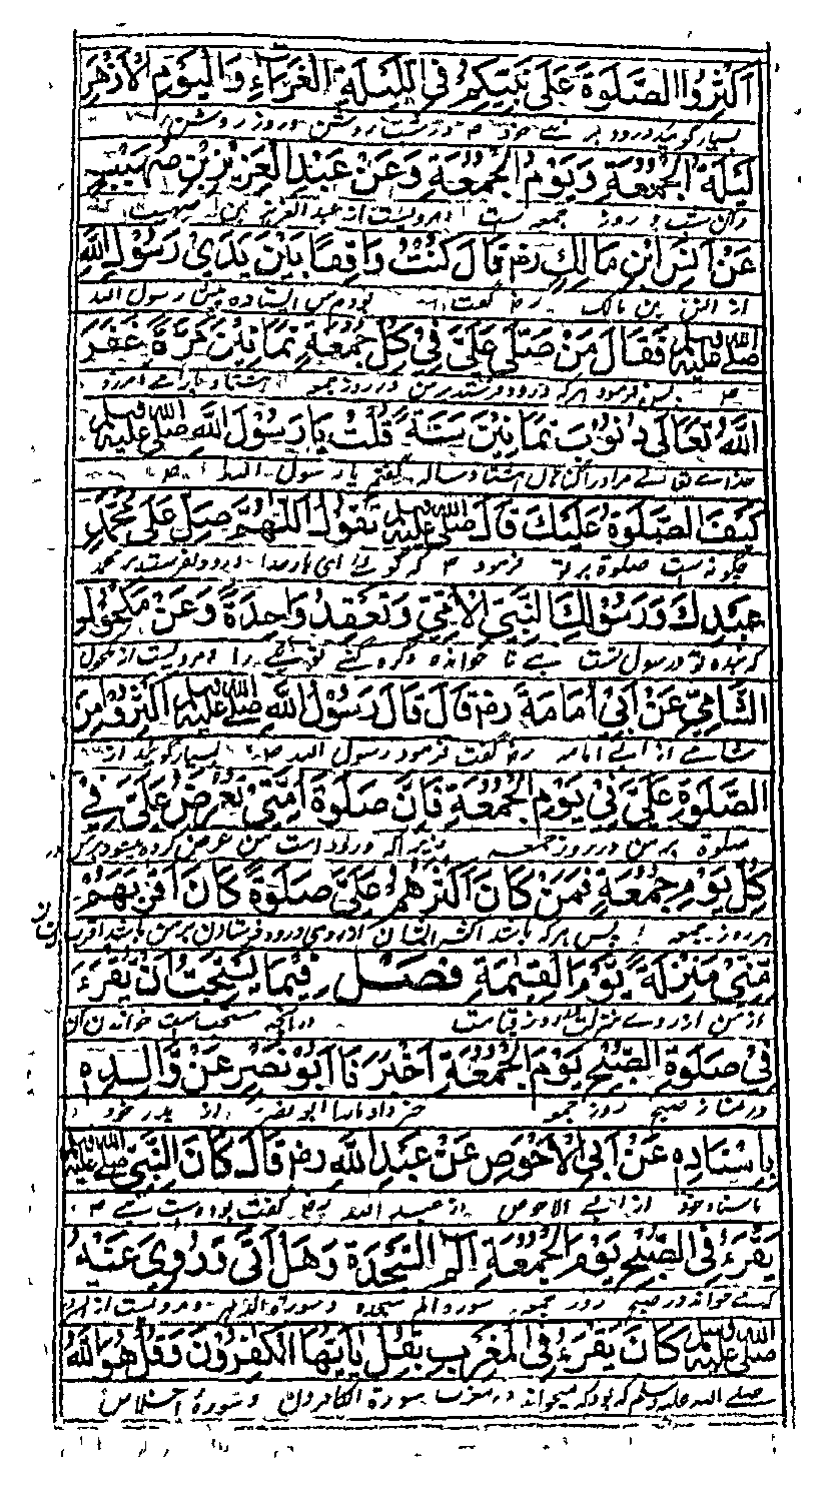 اَكْثِرُوا الصَّلٰوةَ عَلٰى نَبِيِّكُمْ فِي اللَّيْلَةِ الْغَرَّآءِ وَالْيَوْمِ الْاَزْهَرِ
بسیار گویید درود بر نبی خود در شب روشن و روز روشن
لَيْلَةُ الْجُمُعَةِ وَيَوْمُ الْجُمُعَةِ وَعَنْ عَبْدِ الْعَزِيْزِ بْنِ صُهَيْبٍ
و آن شب و روز جمعه است مرویست از عبد العزیز بن صهیب
عَنْ اَنَسِ ابْنِ مَالِكٍ رض قَالَ كُنْتُ وَاقِفًا بَيْنَ يَدَيْ رَسُوْلِ اللّٰهِ
از انس بن مالک رض گفت بودم من ایستاده پیش رسول الله
صلى الله عليه وسلم فَقَالَ مَنْ صَلّٰى عَلَيَّ فِيْ كُلِّ جُمُعَةٍ ثَمَانِيْنَ مَرَّةً غَفَرَ
پس فرمود هرکه درود فرستد بر من در روز جمعه هشتاد بار
اللّٰهُ تَعَالٰى ذُنُوْبَ ثَمَانِيْنَ سَنَةً قُلْتُ يَا رَسُوْلَ اللّٰهِ صلى الله عليه وسلم
خدای تعالی مر او را گناهان هشتاد ساله گفتم یا رسول الله
كَيْفَ الصَّلٰوةُ عَلَيْكَ قَالَ صلى الله عليه وسلم تَقُوْلُ اَللّٰهُمَّ صَلِّ عَلٰى مُحَمَّدٍ
چگونه است صلوة بر تو فرمود که گوئی ای بار خدا درود بفرست بر محمد
عَبْدِكَ وَرَسُوْلِكَ النَّبِيِّ الْاُمِّيِّ وَتَعْقِدُ وَاحِدَةً وَعَنْ مَكْحُوْلِ
که بنده تو و رسول تست نبی نا خوانده و گره کنی و مرویست از مکحول
الشَّامِيِّ عَنْ اَبِيْ اُمَامَةَ رض قَالَ قَالَ رَسُوْلُ اللّٰهِ صلى الله عليه وسلم اَكْثِرُوْا مِنَ
شامی از ابی امامه رض گفت فرمود رسول الله بسیار گویید از
الصَّلٰوةِ عَلَيَّ فِيْ يَوْمِ الْجُمُعَةِ فَاِنَّ صَلٰوةَ اُمَّتِيْ تُعْرَضُ عَلَيَّ فِيْ
صلوة بر من در روز جمعه زیرا که درود امت من عرض کرده میشود بر من در
كُلِّ يَوْمِ جُمُعَةٍ فَمَنْ كَانَ اَكْثَرَهُمْ عَلَيَّ صَلٰوةً كَانَ اَقْرَبَهُمْ
هر روز جمعه پس هرکه باشد اکثر ایشان از روی درود فرستادن بر من باشد اقرب ایشان
مِنِّيْ مَنْزِلَةً يَوْمَ الْقِيٰمَةِ فصل فِيْمَا يُسْتَحَبُّ اَنْ يُقْرَءَ
از من از روی منزلت روز قیامت در آنچه مستحب است خواندن آن
فِيْ صَلٰوةِ الصُّبْحِ يَوْمَ الْجُمُعَةِ اَخْبَرَنَا اَبُوْ نَصْرٍ عَنْ وَّالِدِهٖ
در نماز صبح روز جمعه خبر داد ما را ابو نصر از پدر خود
بِاِسْنَادِهٖ عَنْ اَبِي الْاَحْوَصِ عَنْ عَبْدِ اللّٰهِ رض قَالَ كَانَ النَّبِيُّ صلى الله عليه وسلم
باسناد خود از ابی الاحوص از عبد الله رض گفت بود نبی
يَقْرَءُ فِي الصُّبْحِ يَوْمَ الْجُمُعَةِ الٓمّٓ السَّجْدَةَ وَهَلْ اَتٰى وَرُوِيَ عَنْهُ
میخواند در صبح روز جمعه سوره الم سجده و سورة الدهر و مرویست از
صلى الله عليه وسلم كَانَ يَقْرَءُ فِي الْمَغْرِبِ بِقُلْ يٰۤاَيُّهَا الْكٰفِرُوْنَ وَقُلْ هُوَ اللّٰهُ
صلی الله علیه وسلم که بود که میخواند در مغرب سورة الکافرون و سورۀ اخلاص